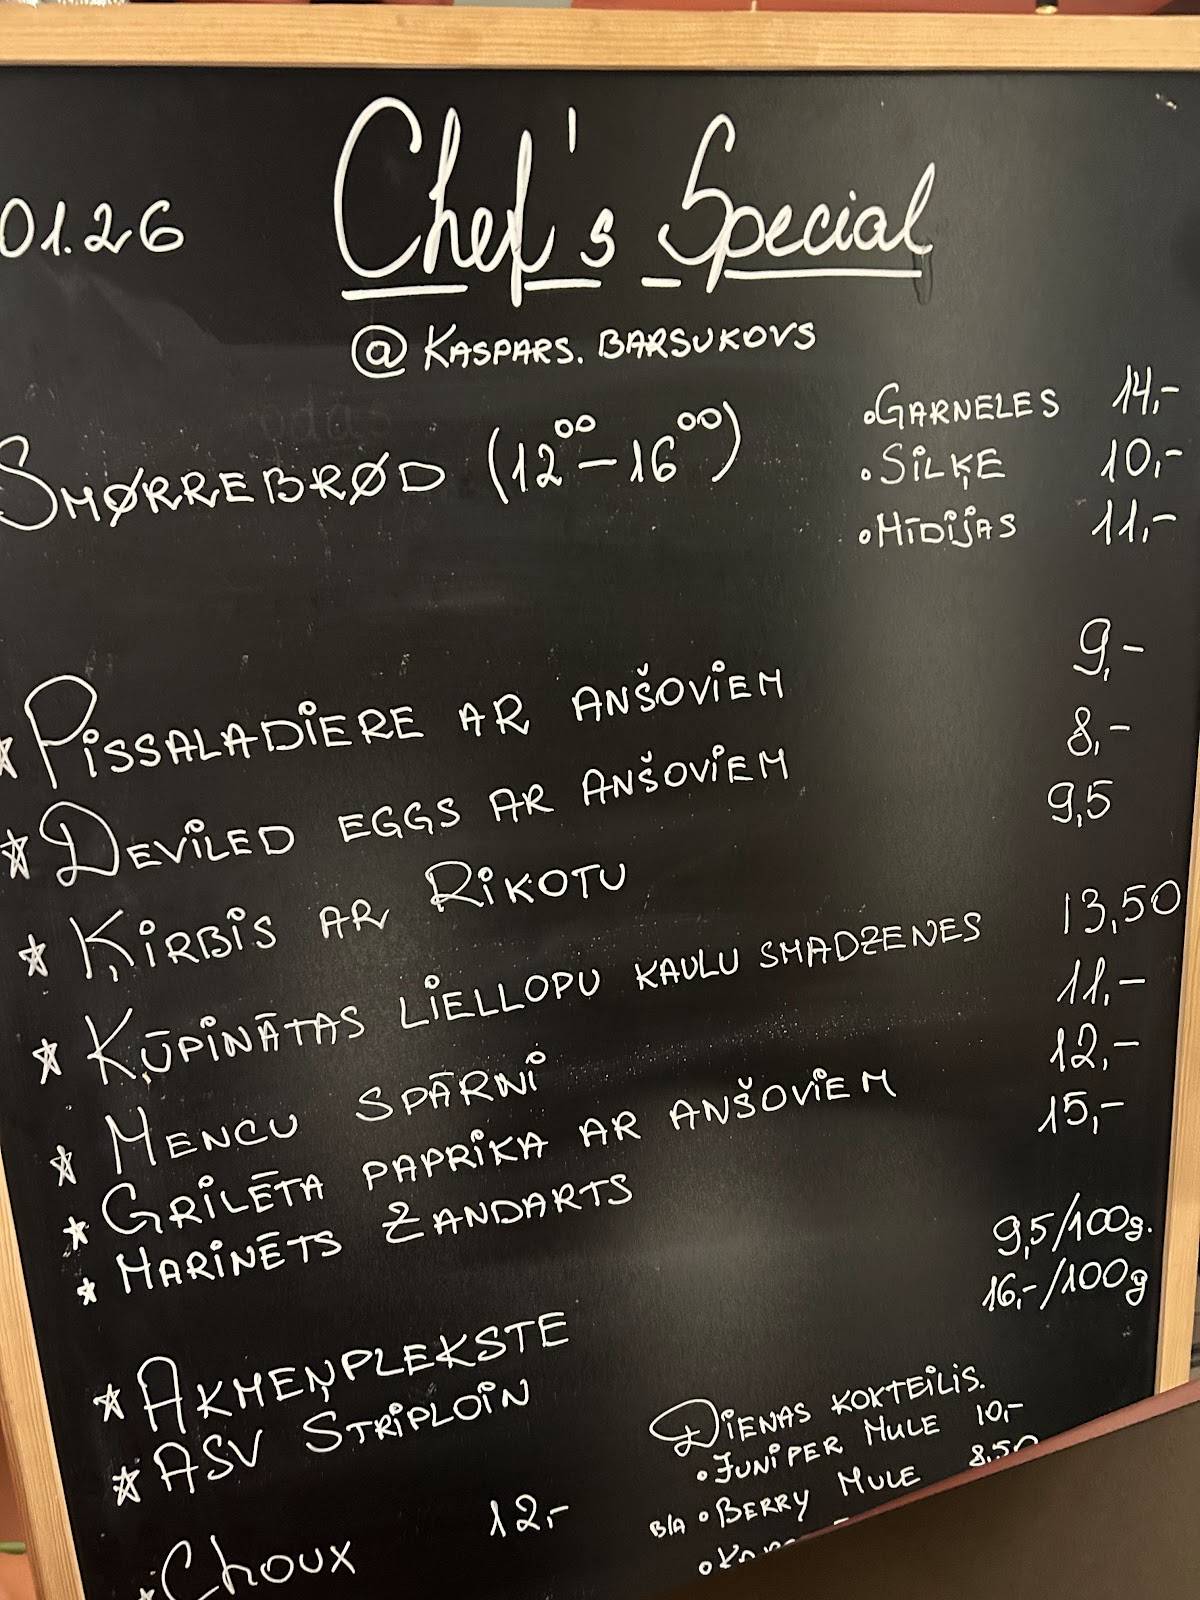 01.26
Chef's Special
@KASPARS.BARSUKOVS
SMØRREBRØD (12⁰⁰-16⁰⁰)
•GARNELES 14,-
•SIĻĶE 10,-
•MĪDIJAS 11,-
☆ PISSALADIERE AR ANŠOVIEM 9,-
☆ DEVILED EGGS AR ANŠOVIEM 8,-
☆ ĶIRBIS AR RIKOTU 9,5
☆ KŪPINĀTAS LIELLOPU KAULU SMADZENES 13,50
☆ MENCU SPĀRNI 11,-
☆ GRILĒTA PAPRIKA AR ANŠOVIEM 12,-
☆ MARINĒTS ZANDARTS 15,-
☆ AKMEŅPLEKSTE 9,5/100g.
☆ ASV STRIPLOIN 16,-/100g
☆ CHOUX 12,-
DIENAS KOKTEILIS.
•JUNIPER MULE 10,-
B/A •BERRY MULE 8,50